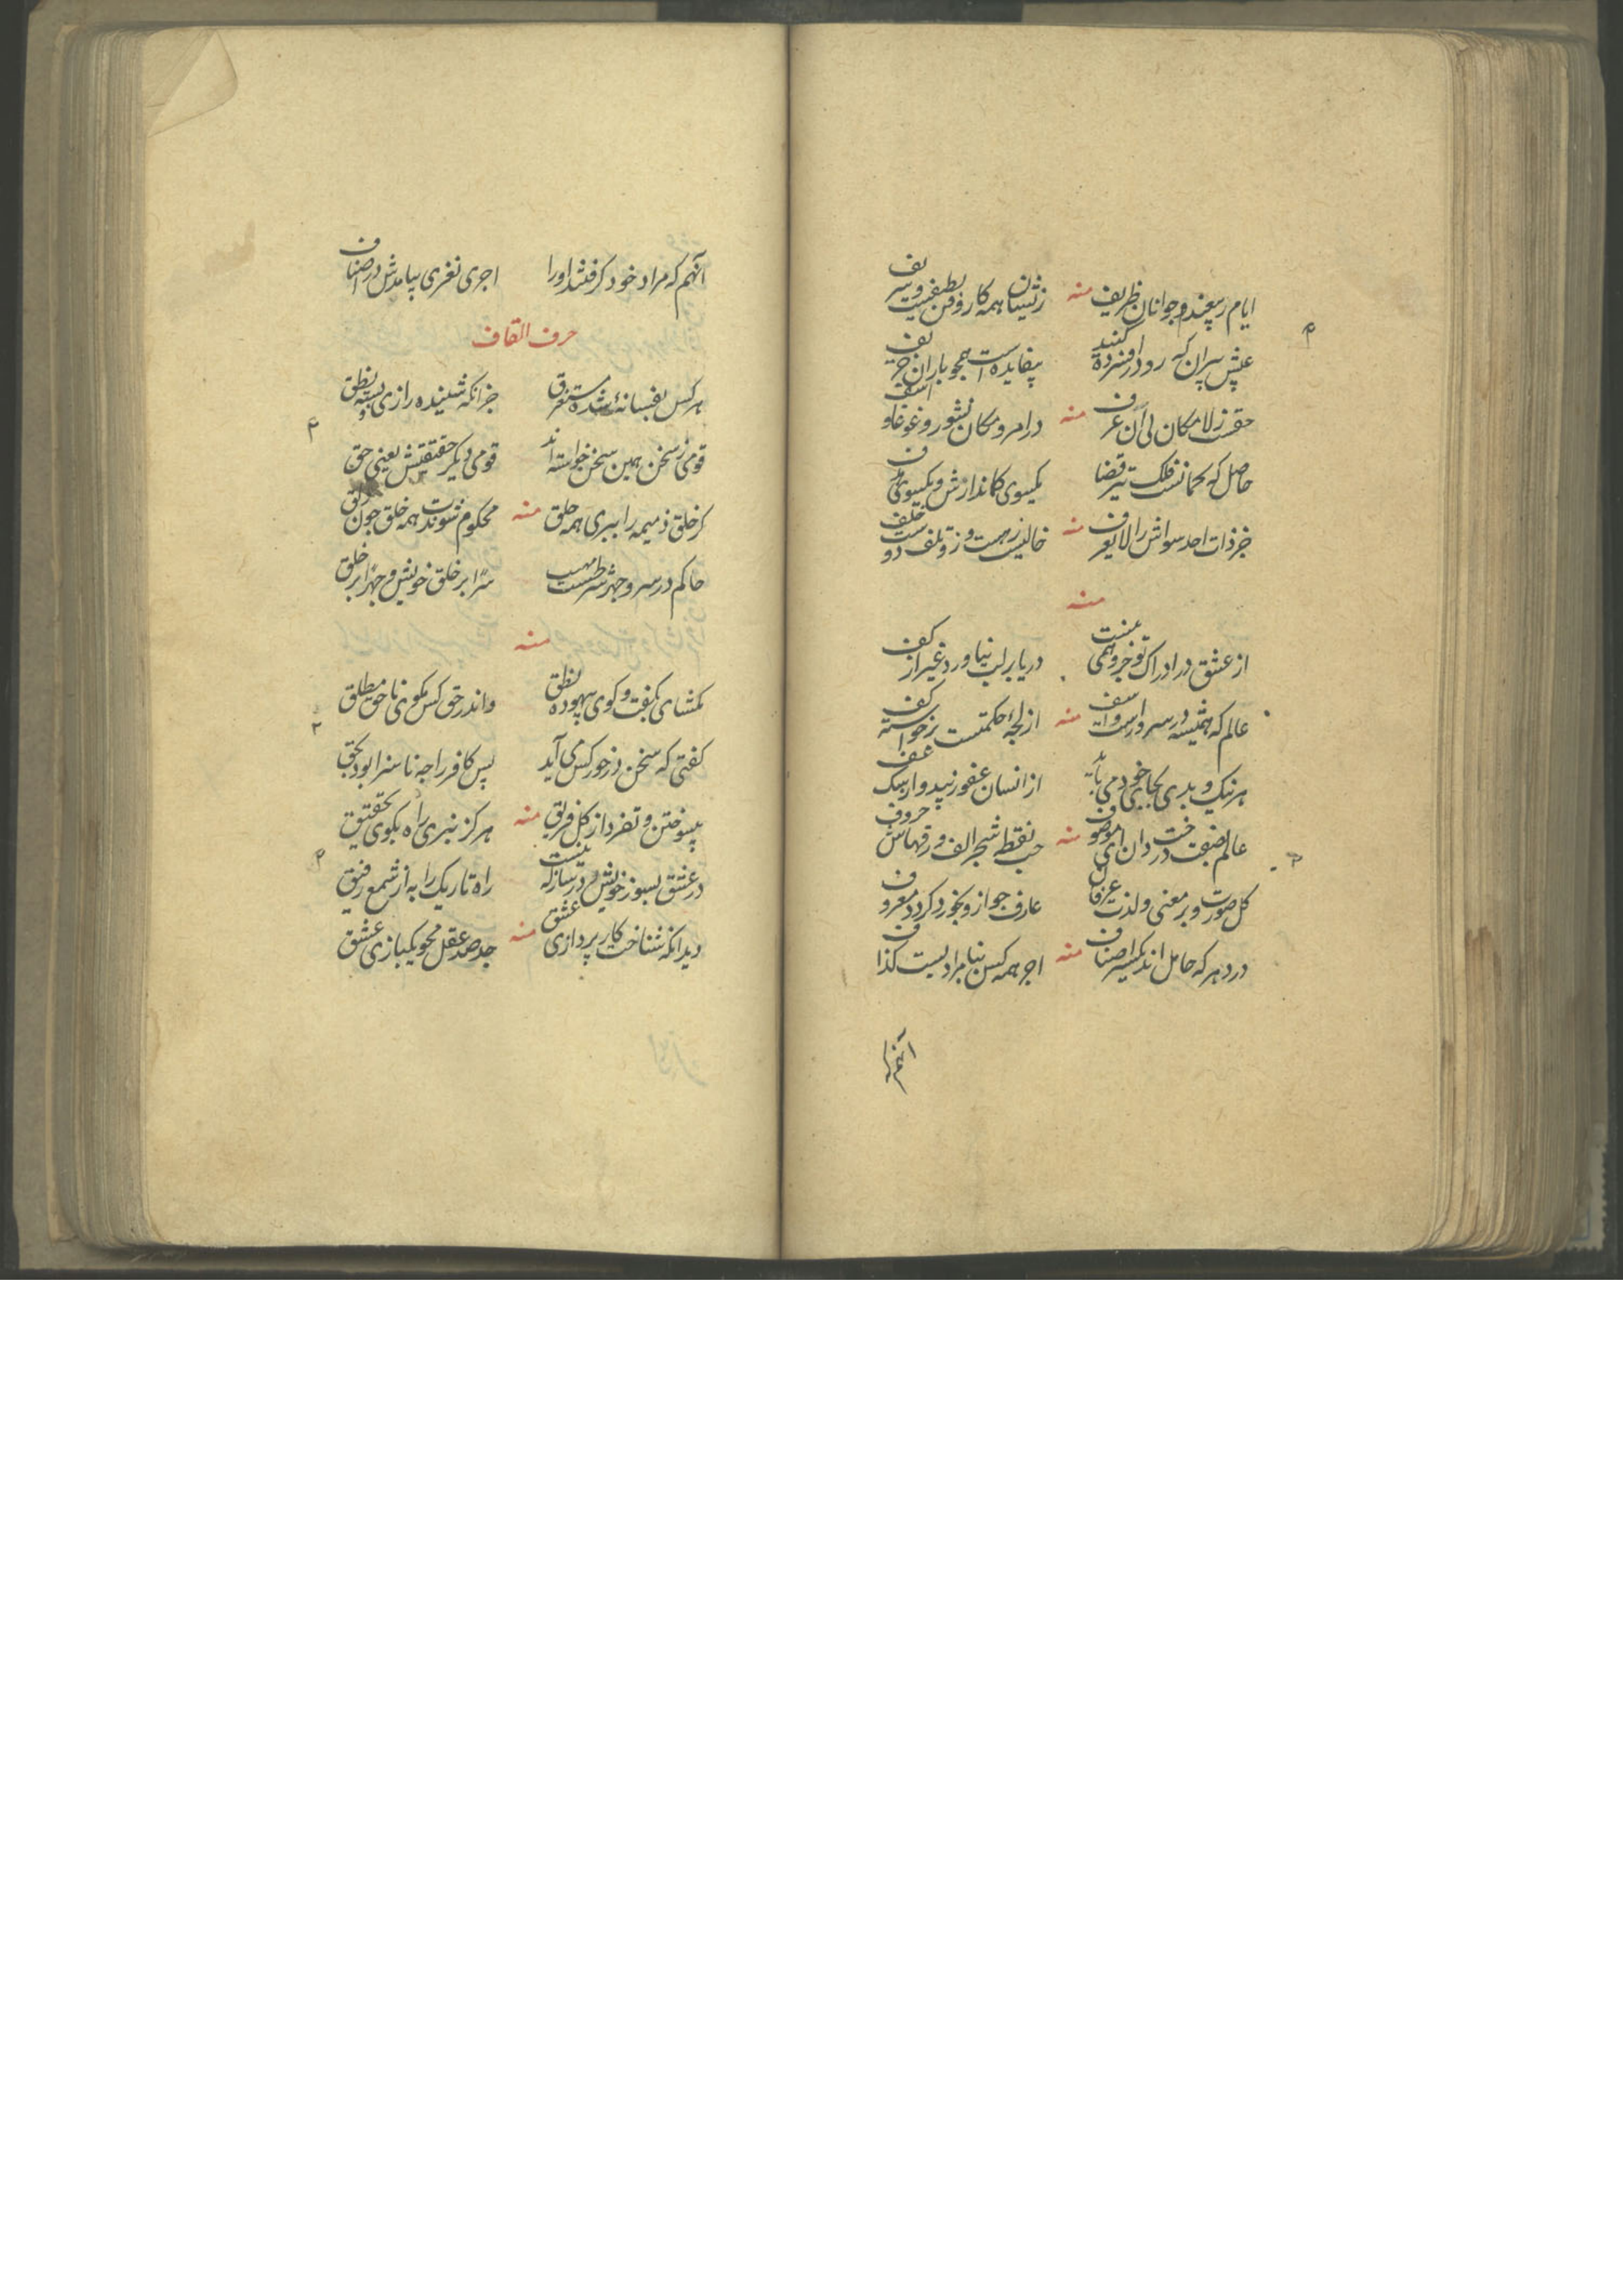 ایام ربیعند و جوانان ظریف منه زیشان همه کار و فن لطیفست و شریف
عیش پیران که رو در افسرده کنند بیفایده است همچو باران خریف
حقست ز لامکان لی آن غرف منه در امر و مکان نشور و غوغا و اسف
حاصل که کمانست فلک تیر قضا یکسوی کماندارش و یکسوی هدف
جز ذات احد سواش را لایعرف منه خالیست ز همت و ز تو تلف دو خلف
منه
از عشق در ادراک تو جز وهمی نیست دریا بر لب نیاورد غیر از کف
عالم که همیشه در سرور است و اسف منه از لجهٔ حکمتست برخواسته کف
هر نیک و بدی بجای خود می باید از انسان عفو زیبد و از سگ عف
عالم بصفت درخت دان ای موصوف منه حب نقطه شجر الف ورقهاش حروف
گل صورت و بر معنی و لذت عرفان عارف چو ازو بخورد گردد معروف
در دهر که حامل اند یکسر اصناف منه اجر همه کس بنامرادیست گذاف
آنهم که
آنهم که مراد خود گرفتند او را اجری نغری بیامدش در اصناف
حرف القاف
هر کس بفسانهٔ شده مستغرق جز آنکه شنیده رازی و بسته نطق
قومی ز سخن همین سخن خواسته اند قومی دیگر حقیقتش یعنی حق
گر خلق ذمیمه را ببری همه حلق منه محکوم شوندت همه خلق چون دلق
حاکم در سر و جهر شرطست مهیب سرا بر خلق خویش و جهرا بر خلق
منه
مگشای بگفت و گوی بیهوده نطق و اندر حق کس مگوی ناحق مطلق
گفتی که سخن در خور کس می آید پس کافر را چه ناسزا بود بحق
بی سوختن و تفرد از کل فریق منه هرگز نبری راه بکوی تحقیق
در عشق بسوز خویش در ساز که نیست راه تاریک را به از شمع رفیق
دید آنکه شناخت کار پردازی عشق منه جد صد عقل محو یکبازی عشق